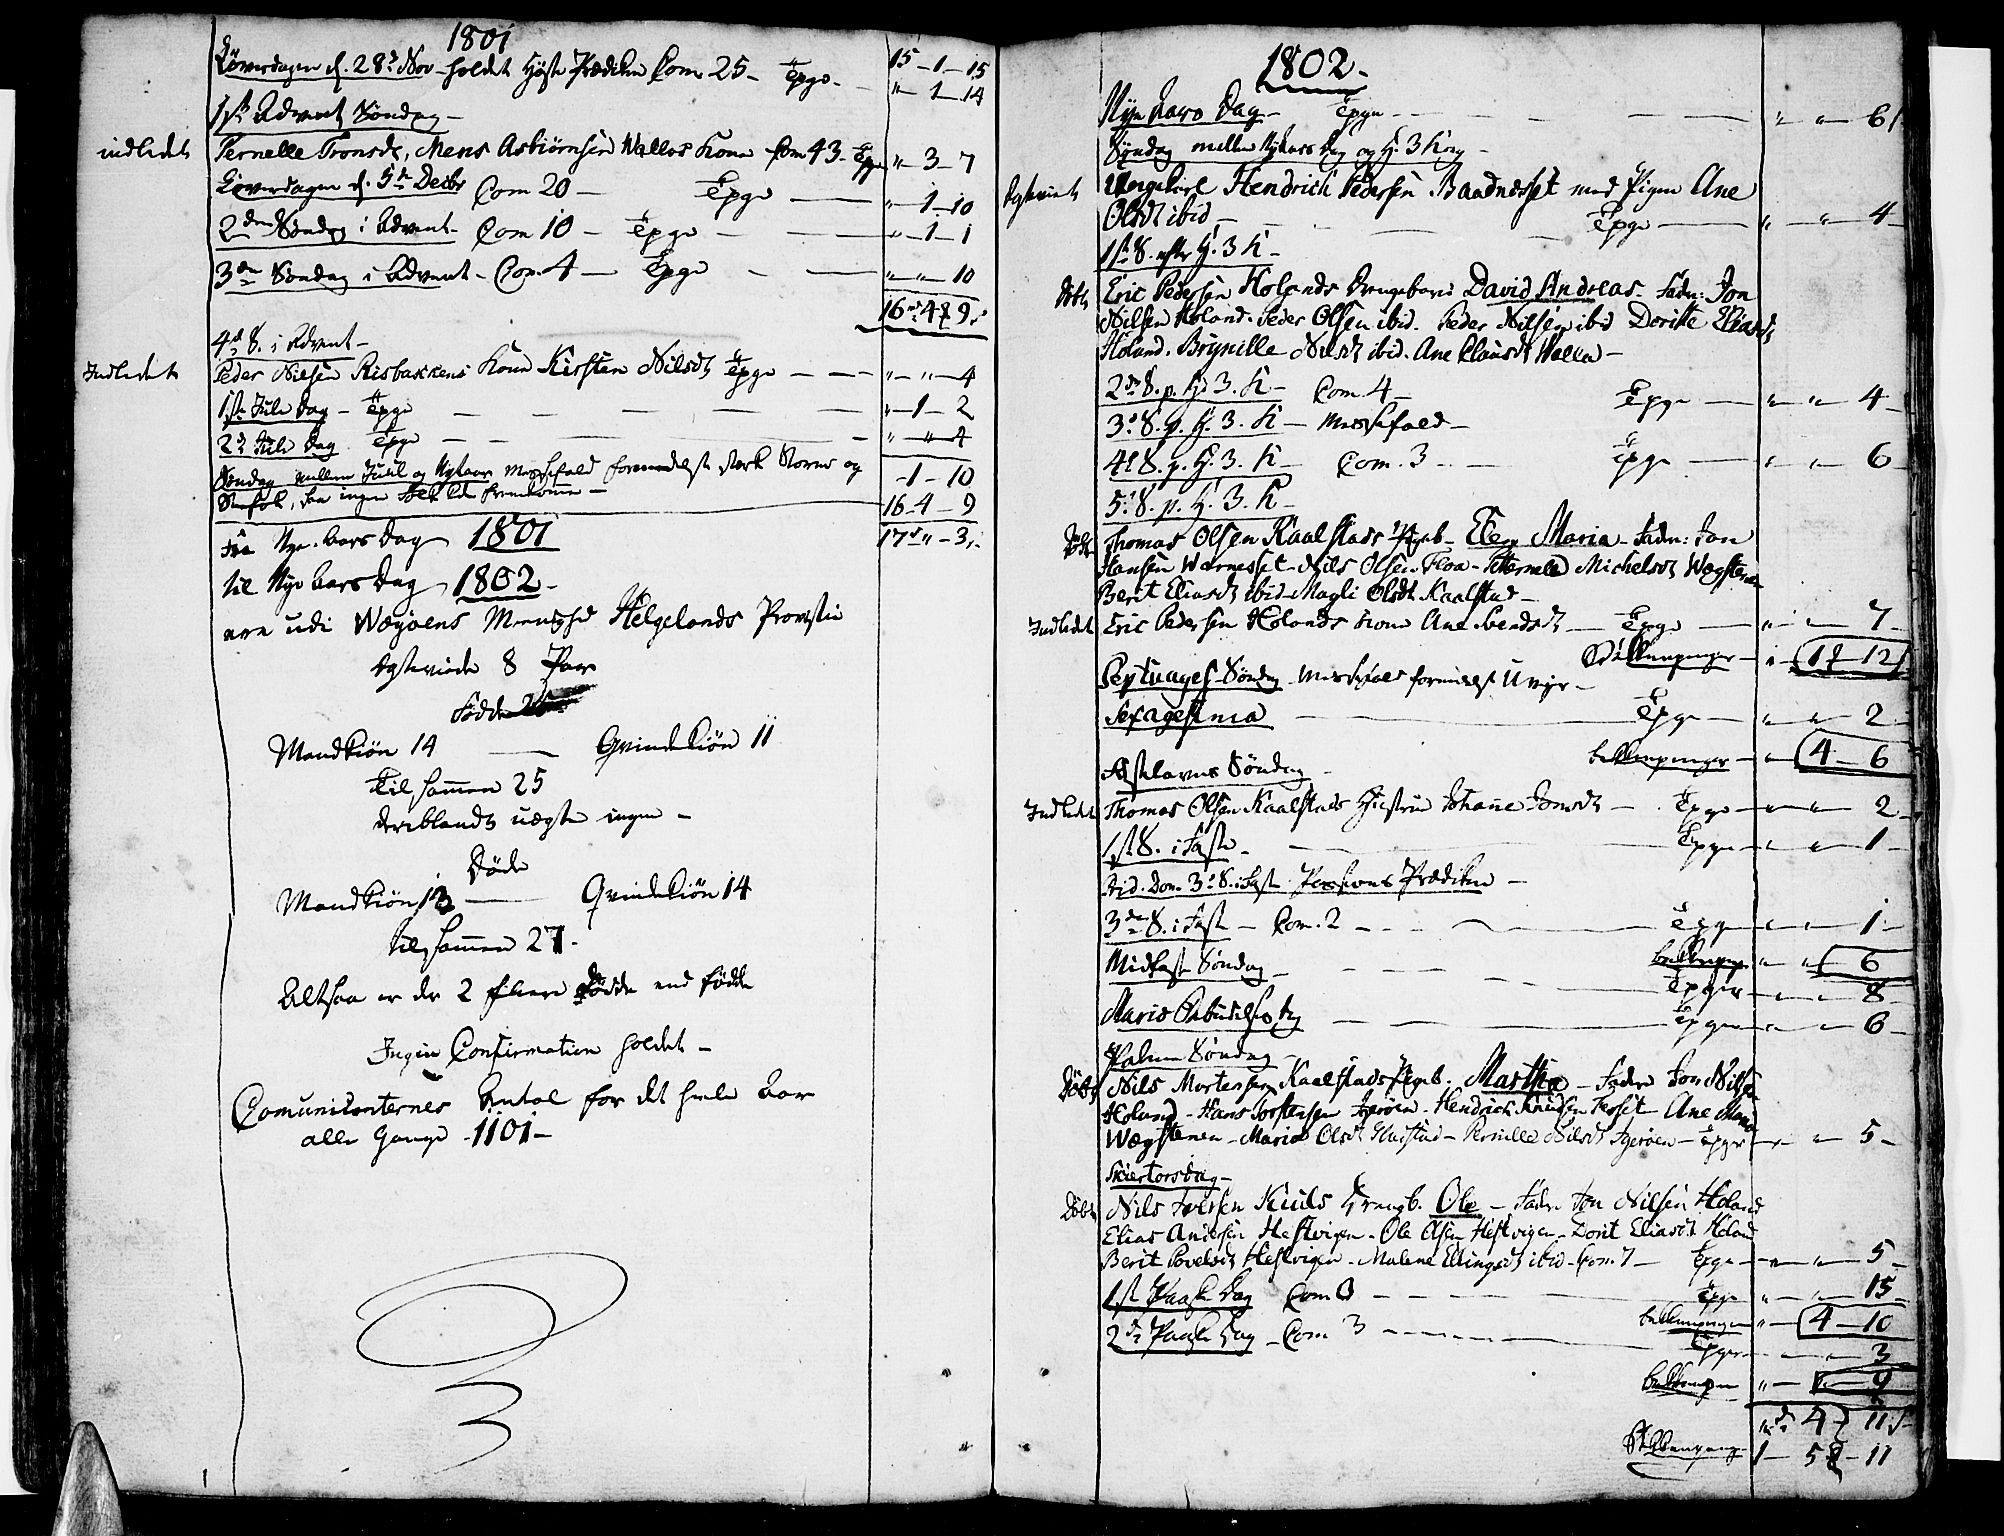 1801
Löverdagen d. 28de Nov holdet Høst Prædiken Com 25 - Tpge - 15 - 1 - 15
" - 1 - 14
1ste Advent Søndag -
indledet Pernelle Tronsdr, Mens Asbiørnsen Walles Kone Com 43 - Tpge " - 3 - 7
Löverdagen d. 5te Decbr Com 20 - Tpge - " - 1 - 10
2den Søndag i Advent - Com 10 - Tpge - " - 1 - 1
3de Søndag i Advent - Com. 4 - Tpge - " - " - 10
16 - 4 - 9
4de S. i Advent -
Indledet Peder Nielsen Risbakkens Kone Kirsten Nilsdr Tpge - " - " - 4
1ste Jule Dag - Tpge - " - 1 - 2
2den Jule Dag Tpge - " - " - 4
Søndag mellem Juul og Nytaar Messefald formedelst stærk Storm og - 1 - 10
Snefok, saa ingen Folk kunde fremkomme - 16 - 4 - 9
17 - " - 3
Fra Nye Aars Dag 1801
til Nye Aars Dag 1802 -
ere udi Wæyøens Menighed Helgelands Provstie
Ægteviede 8 Par
Fødde
Mandkiön 14 - Qvindekiön 11
Tilsammen 25
deriblandt uægte ingen -
Døde
Mandkiön 13 - Qvindekiön 14
tilsammen 27 -
Altsaa er der 2 flere Døde end fødde
Ingen Confirmation holdet -
Comunicanternes Antal for det hele Aar
alle Gange - 1101 -
3
1802 -
Nye Aars Dag - Tpge - " " 6
Søndag mellem Nytaars Dag og H. 3 Kong -
Ægteviet Ungekarl Hendrich Pedersen Baadnesset med Pigen Ane
Olsdr ibid - Tpge - " " 4
1ste S. efter H. 3 K -
Döbt Eric Pedersen Holands Drengebarn David Andreas - Fadd: Jon
Nilsen Holand. Peder Olsen ibid. Peder Nilsen ibid Doritte Eliasdr
Holand. Brynille Nilsdr ibid. Ane Clausdr Walle -
2den S. p. H. 3. K - Com. 4 - Tpge - " " 4
3de S. p. H. 3. K - Messefald -
4de S. p. H. 3. K - Com. 3 - Tpge - " " 6
5te S. p. H. 3. K -
Döbt Thomas Olsen Kaalstads Pigeb - Elen Maria - Fadd: Jon
Hansen Warnesset - Nils Olsen Floa - Pernelle Michelsdr Wægstenen
Berit Eliasdr ibid - Magli Olsdr Kaalstad -
Indledet Eric Pedersen Holands Kone Ane Svendsdr - Tpge - " " 7
- 17 - 12
Septuages. Søndag - Messefald formedelst Uveyr -
Sexagesima - Tpge - " " 2
" - 4 - 6
Fastelavns Søndag -
Indledet Thomas Olsen Kaalstads Hustrue Johane Jonsdr - Tpge - " " 2
1ste S. i Faste - Tpge - " " 1
3de S. i Fast. Passions Prædiken -
3de S. i Fast - Com. 2 - Tpge " " 1
Midfaste Søndag - " " 6
Tpge - " 8
Mariæ Bebudelses Dag - Tpge - " " 6
Palme Søndag -
Döbt Nils Mortensen Kaalstads Pigeb. Martha - Faddere Jon Nilsen
Holand - Hans Torstensen Igerøen - Hendrich Knudsen Forset - Ane Maria
Wægstenen - Maria Olsdr Harstad - Pernille Nilsdr Igerøen - Tpge - " " 5 -
Skiertorsdag -
Döbt Nils Iversen Kuuls Drengeb. Ole - Fadd. Jon Nilsen Holand
Elias Andersen Hestvigen - Ole Olsen Hestvigen - Dorit Eliasdr Holand
Berit Povelsdr Hestvigen - Malene Ellingsdr ibid - Com. 7 - Tpge - " " 5 -
1ste Paaske Dag Com 3 - Tpge " " 15
" - 4 - 10
2den Paaske Dag - Com 3 - Tpge - " " 3
" - " - 9
" 4 - 11
1 - 5 - 11